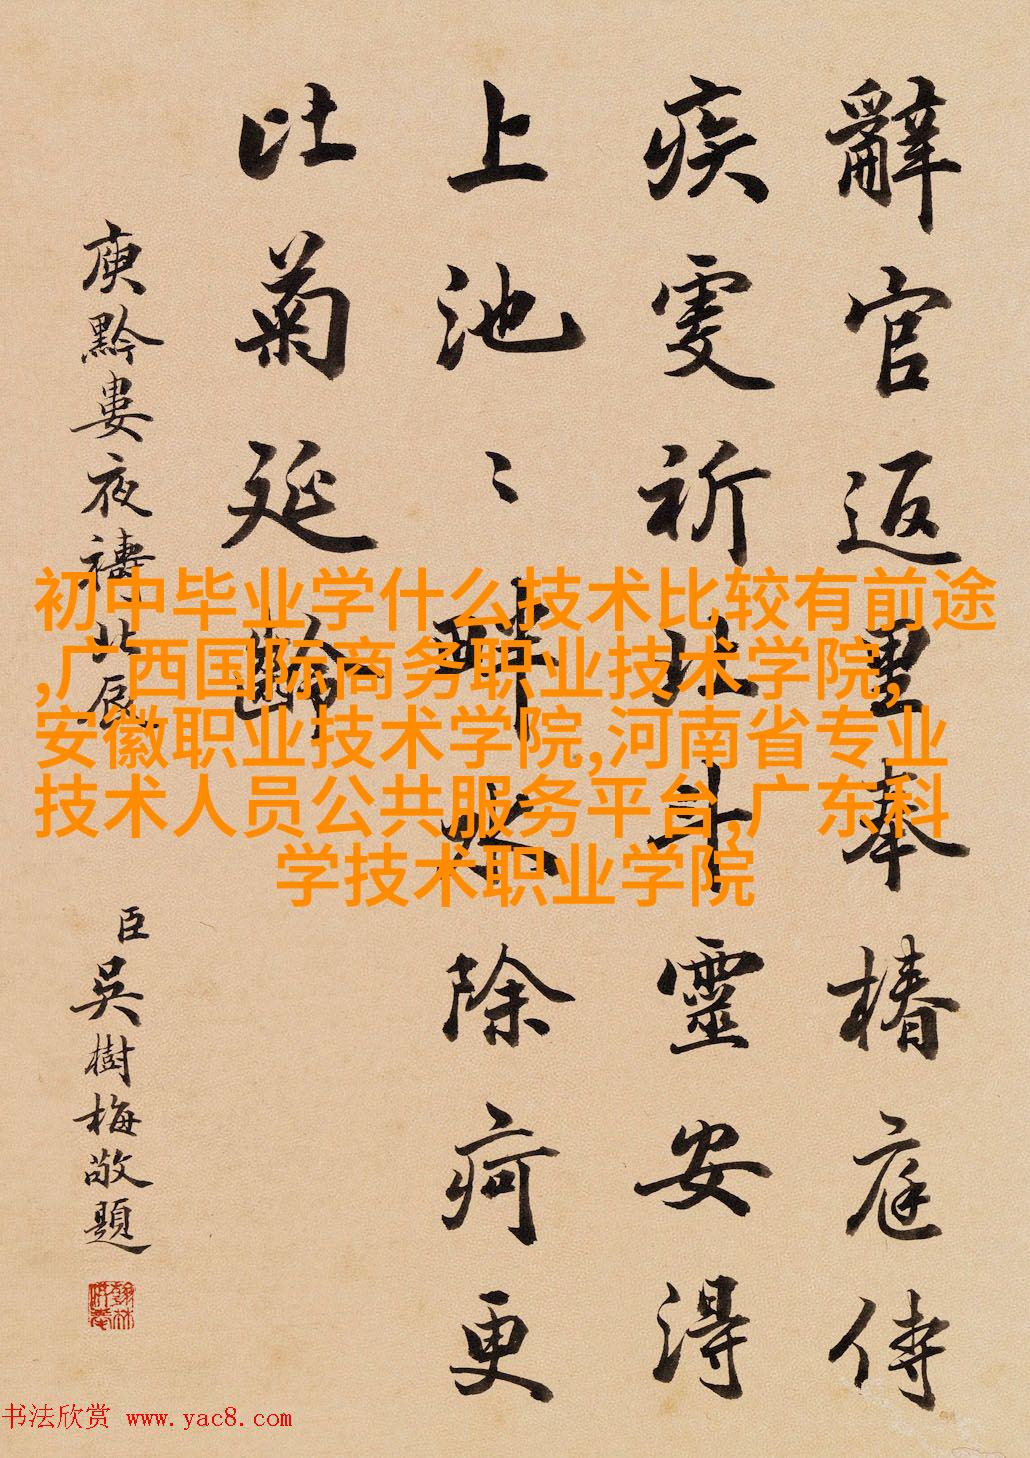 辭官返里奉椿庭侍
疾虔祈北斗靈安得
上池〻畔水除疴更
比菊延齡
庾黔婁夜禱北辰
臣吳樹梅敬題
初中毕业学什么技术比较有前途
,广西国际商务职业技术学院,
安徽职业技术学院,河南省专业
技术人员公共服务平台,广东科
学技术职业学院
书法欣赏 www.yac8.com